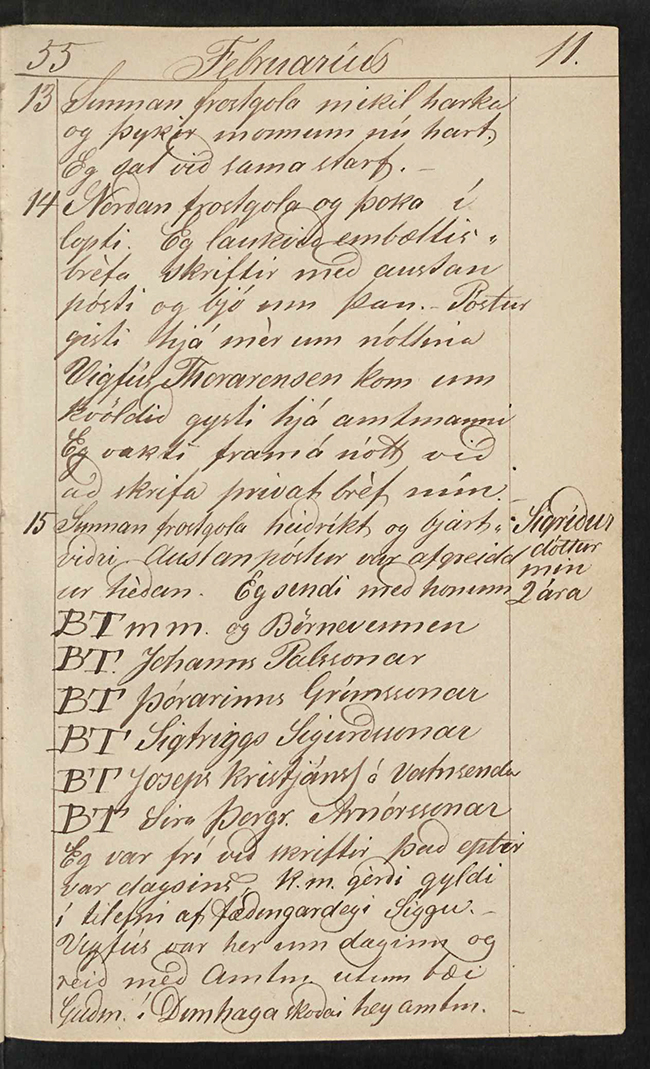 55 Februaríus 11.
13 Sunnan frostgola mikil harka
og þykir mönnum nú hart.
Eg gat við sama starf. –
14 Norðan frostgola og þoka í
lopti. Eg lauk við embættis „
brèfa skriftir með austan
pósti og bjó um þau. – Póstur
gisti hjá mèr um nóttina
Vigfús Thorarensen kom um
kvöldið gysti hjá amtmanni
Eg vakti framá nótt við
að skrifa privat brèf mín.
15 Sunnan frostgola heiðríkt og bjart „
viðri. Austanpóstur var afgreidd
ur hèðan. Eg sendi með honum
Sigríður
dóttur
mín
2 ára
BT m m. og Börnevennen
BT. Johanns Palssonar
BT Þórarinns Grímssonar
BT Sigtriggs Sigurðssonar
BT Joseps Kristjánss á Vatnsenda
BT Sira Þorgr. Arnórssonar
Eg var frí við skriftir það eptir
var dagsins, K.m. gèrði gyldi
í tilefni af fæðingardegi Siggu. –
Vigfús var her um daginn og
reið með Amtm. utum bæi
Guðm. í Dunhaga skoða hey amtm. –